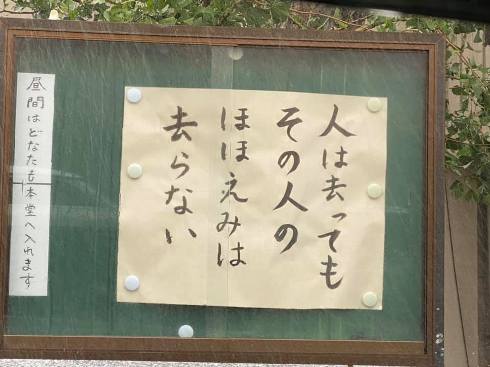 人は去っても
その人の
ほほえみは
去らない
昼間はどなたも本堂へ入れます